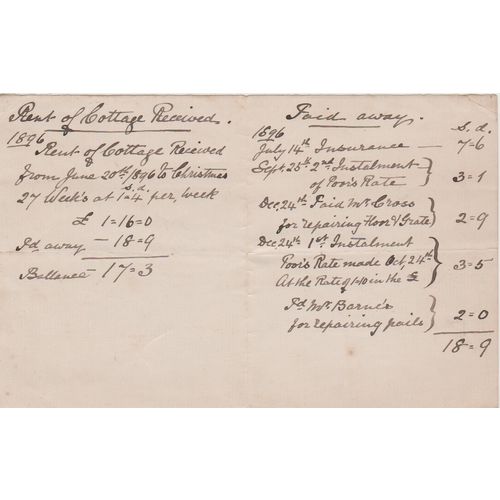 Rent of Cottage Received.
1896
Rent of Cottage Reeived
from June 20th 1896 to Christmas
27 Week's at 1=4 per, week
s. d.
£ 1=16=0
Pd away — 18=9
Ballance 17=3
Paid away.
1896
s. d.
July 14th Insurance — 7=6
Sept, 25th 2nd Instalment
of Poor's Rate } 3=1
Dec, 24th Paid Mr Cross
for repairing Floor & Grate } 2=9
Dec, 24th 1st Instalment
Poor's Rate made Oct, 24th
At the Rate of 1-10 in the £ } 3=5
Pd Mr Barnes
for repairing pails } 2=0
18=9